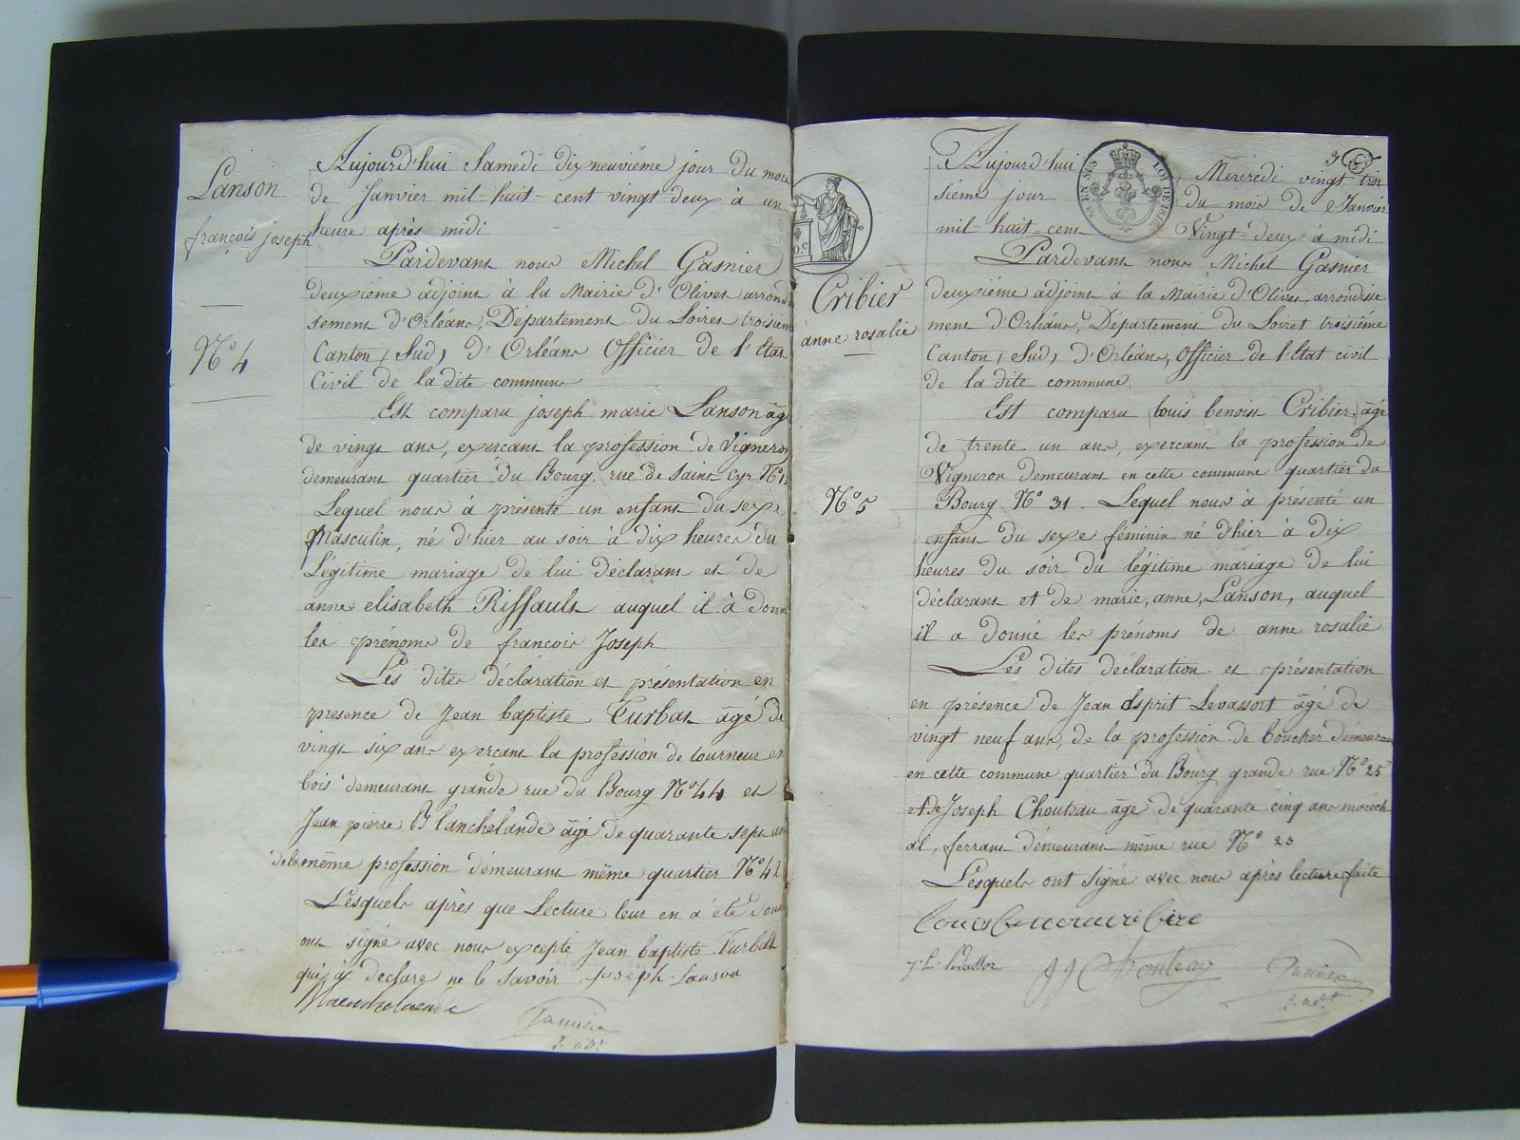 Lanson
françois joseph
N° 4
Aujourd'hui Samedi dix neuvième jour du mois
de Janvier mil-huit-cent vingt deux à un
heure après midi
Pardevant nous Michel Gasnier
deuxième adjoint à la Mairie d'Olivet arrondi
sement d'Orléans, Département du Loiret troisième
Canton, Sud, d'Orléans Officier de l'Etat
Civil de la dite commune
Est comparu joseph marie Lanson âgé
de vingt ans, exerçant la profession de Vigneron
demeurant quartier du Bourg rue de Saint Cyr
Lequel nous à présenté un enfant du sexe
Masculin, né d'hier au soir à dix heures du
Légitime mariage de lui déclarant et de
anne elisabeth Riffault auquel il à donné
les prénoms de françois Joseph
Les dites déclaration et présentation en
presence de Jean baptiste Turbat âgé de
vingt six ans exerçant la profession de tourneur en
bois demeurant grande rue du Bourg N° 44 et
Jean pierre Blanchelande âgé de quarante sept ans
de la même profession démeurant même quartier N° 42
Lesquels après que Lecture leur en a été
ont signé avec nous excepté Jean baptiste Turbat
qui à déclaré ne le Savoir joseph Lanson
Blanchelande
Gasnier
2. adt
Cribier
anne rosalie
N° 5
3
Aujourd'hui Mercredi vingt trois
sième jour du mois de Janvier
mil-huit-cent Vingt-deux à midi
Pardevant nous Michel Gasnier
deuxième adjoint à la Mairie d'Olivet arrondisse
ment d'Orléans, Département du Loiret troisième
Canton, Sud, d'Orléans, Officier de l'Etat civil
de la dite commune
Est comparu louis benoist Cribier âgé
de trente un ans, exerçant la profession de
Vigneron demeurant en cette commune quartier du
Bourg N° 31. Lequel nous à présenté un
enfant du sexe féminin né d'hier à dix
heures du soir du légitime mariage de lui
déclarant et de marie, anne, Lanson, auquel
il a donné les prénoms de anne rosalie
Les dites déclaration et présentation
en présence de Jean Esprit Levassort âgé de
vingt neuf ans, de la profession de boucher démeurant
en cette commune quartier du Bourg grande rue N° 25
et de Joseph Chouteau âgé de quarante cinq ans maréch
al, ferrant démeurant même rue N° 23
Lesquels ont Signé avec nous après lecture faite
Louis benoit cribier
J. E. Levassor
J J Chouteau
Gasnier
2. adt